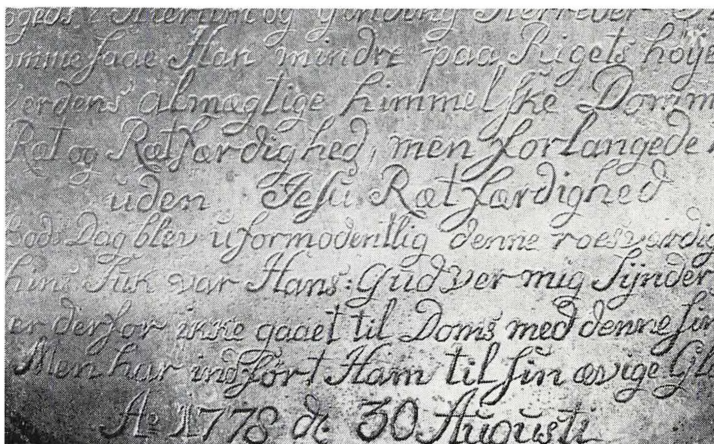 og Hending Herreder
omme saae Han mindre paa Rigets höye
erdens almægtige himmelske Domm
Ræt og Rætfærdighed, men forlangede
uden Jesu Rætfærdighed
God Dag blev uformodentlig denne roesværdig
hins Suk var Hans: Gud ver mig Synder
er derfor ikke gaaet til Doms med denne sin
Men har indført Ham til sin ævige Gl
Aº 1778 d: 30 Augusti